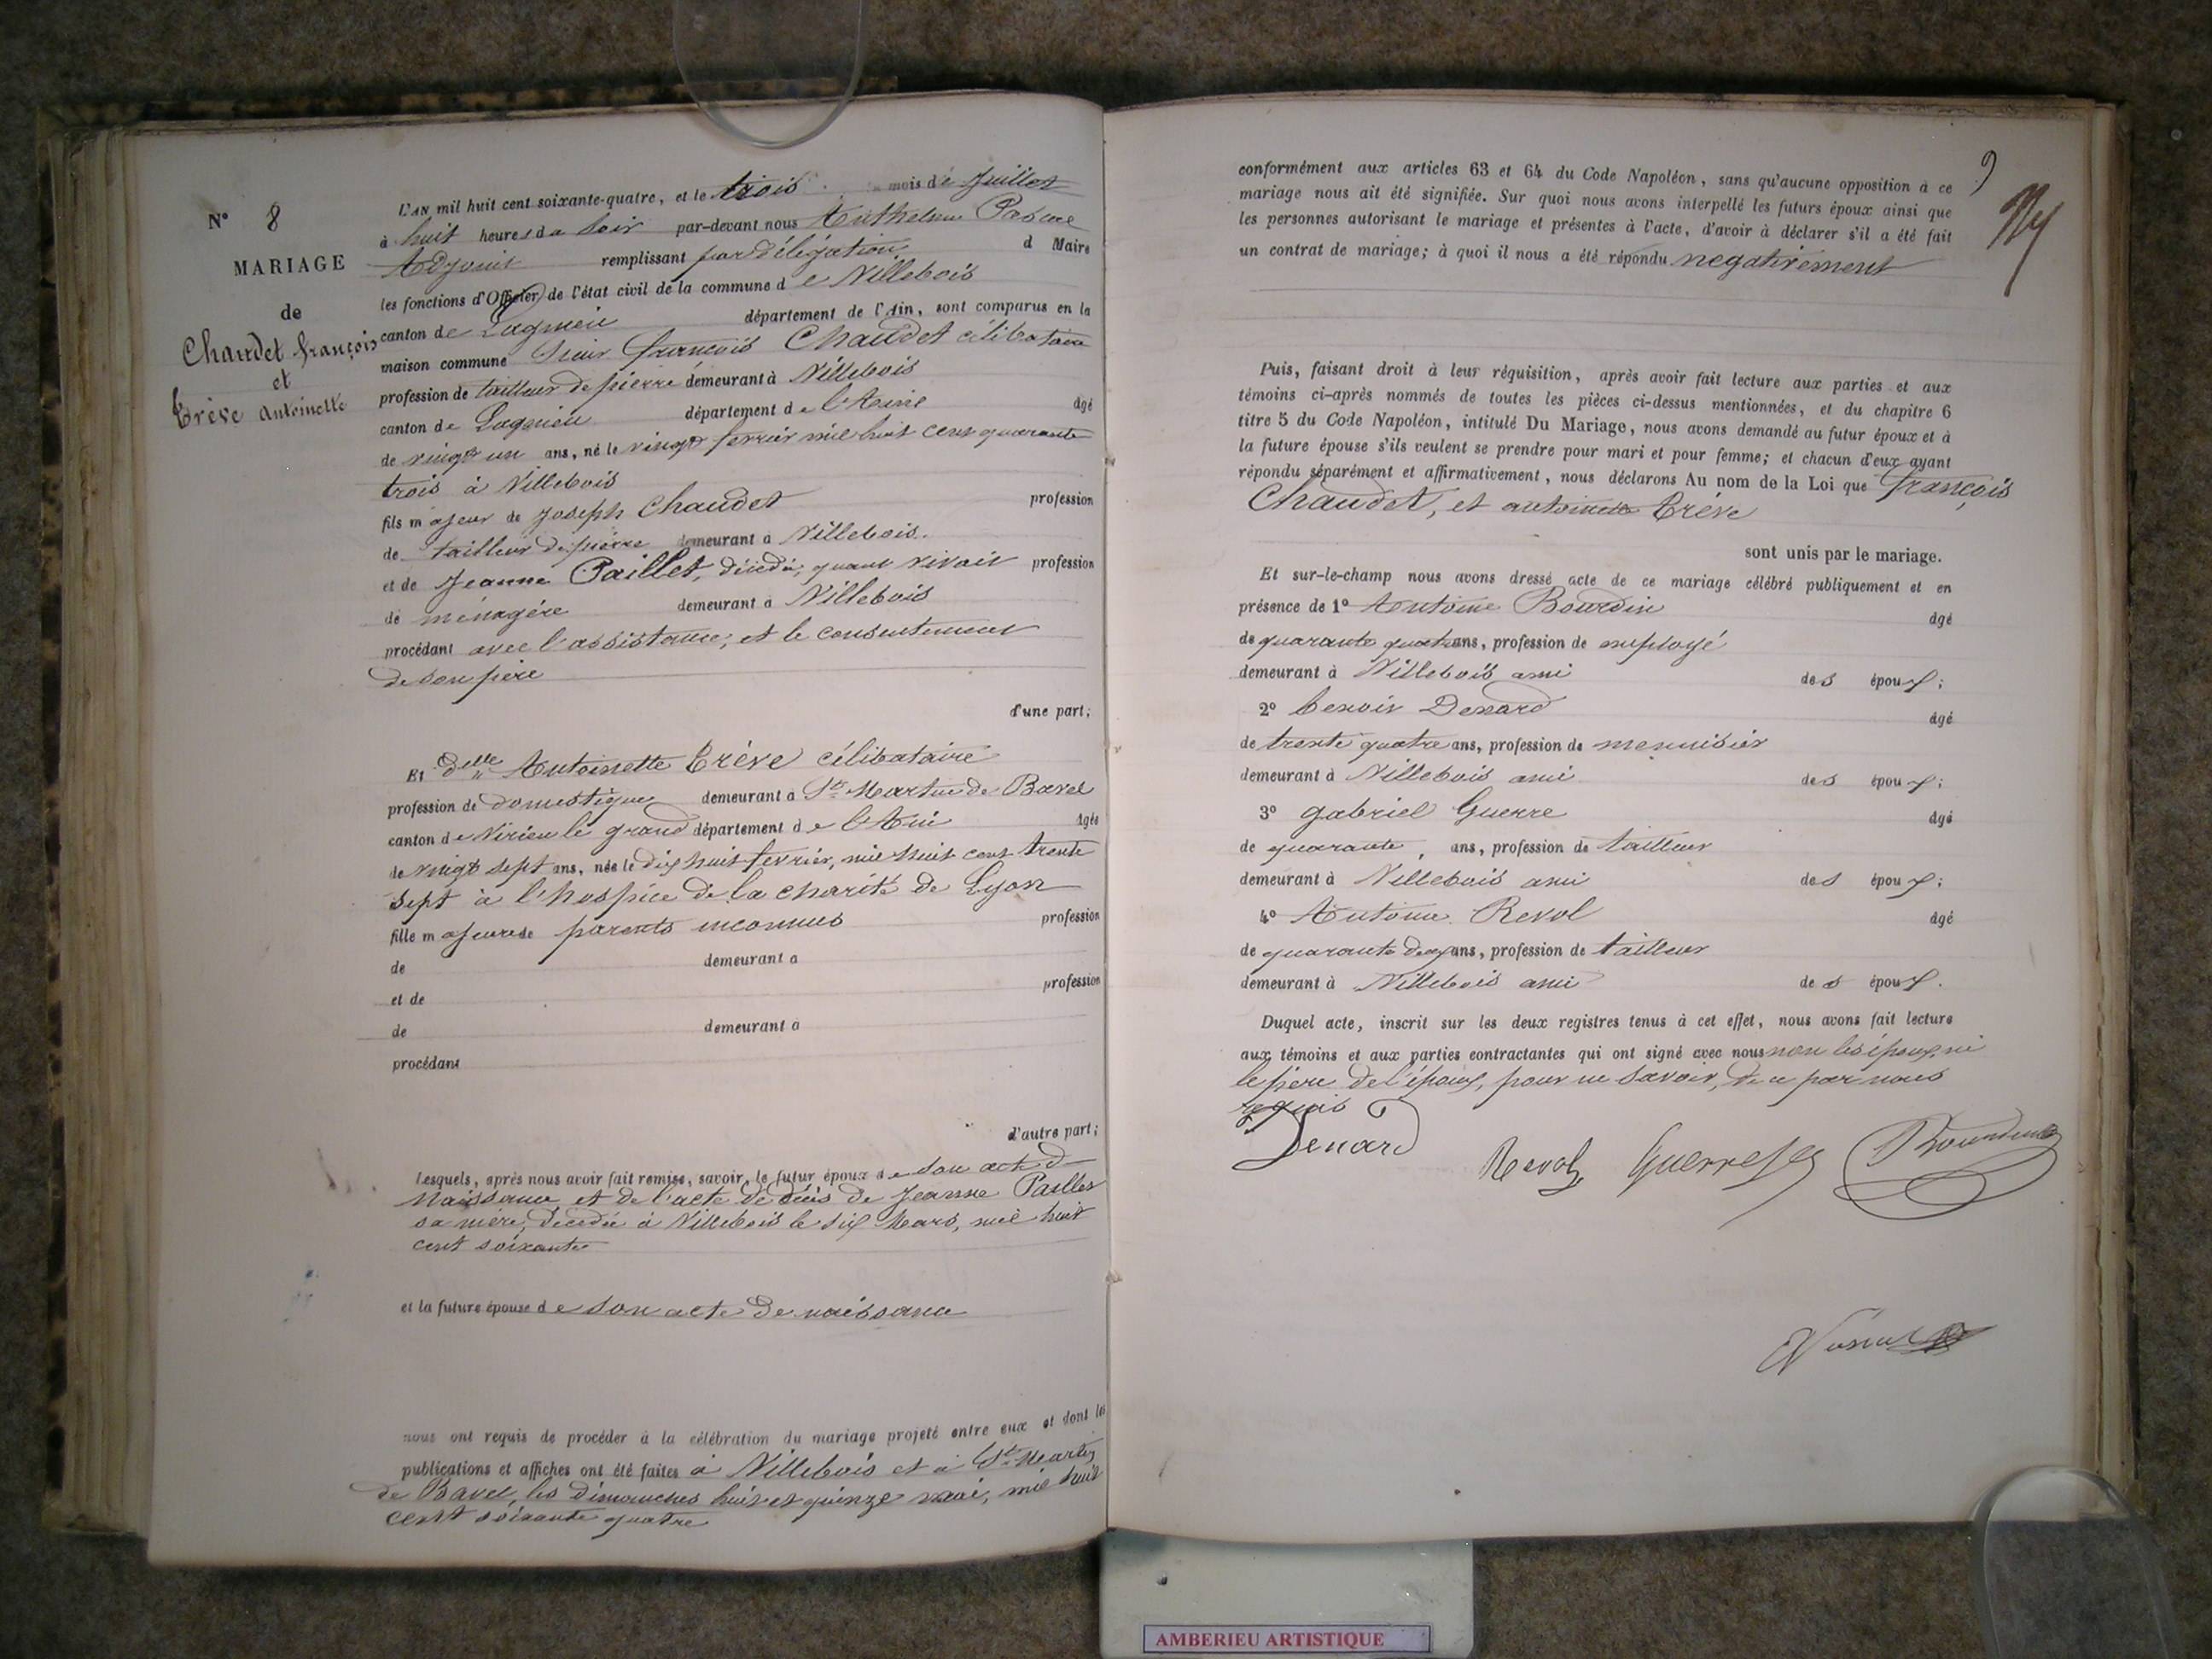 N° 8
MARIAGE
de
Chaudet françois
et
Crève Antoinette
L'AN mil huit cent soixante-quatre, et le trois mois de Juillet
à huit heures du Soir par-devant nous Anthelme
Adjoint remplissant par délégation d Maire
les fonctions d'Officier de l'état civil de la commune de Villebois
canton de Lagnieu département de l'Ain, sont comparus en la
maison commune Sieur François Chaudet célibataire
profession de tailleur de pierre demeurant à Villebois
canton de Lagnieu département de l'Ain âgé
de vingt un ans, né le vingt fevrier mil huit cent quarante
trois à Villebois
fils majeur de Joseph Chaudet profession
de tailleur de pierre demeurant à Villebois.
et de Jeanne Paillet, décédée, quant vivait profession
de ménagère demeurant à Villebois
procédant avec l'assistance, et le consentement
de son père
d'une part;
Et Delle Antoinette Crève célibataire
profession de domestique demeurant à St Martin de Bavel
canton de Virieu le grand département de l'Ain âgée
de vingt sept ans, née le dix huit fevrier, mil huit cent trente
sept à l'hospice de la charité de Lyon
fille majeure de parents inconnus profession
de demeurant à
et de profession
de demeurant à
procédant
d'autre part;
Lesquels, après nous avoir fait remise, savoir, le futur époux de son acte de
Naissance et de l'acte de décès de Jeanne Paillet
sa mère, décédée à Villebois le six Mars, mil huit
cent soixante
et la future épouse de son acte de naissance
nous ont requis de procéder à la célébration du mariage projeté entre eux et dont les
publications et affiches ont été faites à Villebois et à St Martin
de Bavel, les dimanches huit et quinze mai, mil huit
cent soixante quatre
9
conformément aux articles 63 et 64 du Code Napoléon, sans qu'aucune opposition à ce
mariage nous ait été signifiée. Sur quoi nous avons interpellé les futurs époux ainsi que
les personnes autorisant le mariage et présentes à l'acte, d'avoir à déclarer s'il a été fait
un contrat de mariage; à quoi il nous a été répondu negativement
Puis, faisant droit à leur réquisition, après avoir fait lecture aux parties et aux
témoins ci-après nommés de toutes les pièces ci-dessus mentionnées, et du chapitre 6
titre 5 du Code Napoléon, intitulé Du Mariage, nous avons demandé au futur époux et à
la future épouse s'ils veulent se prendre pour mari et pour femme; et chacun d'eux ayant
répondu séparément et affirmativement, nous déclarons Au nom de la Loi que françois
Chaudet, et antoinette Crève
sont unis par le mariage.
Et sur-le-champ nous avons dressé acte de ce mariage célébré publiquement et en
présence de 1° Antoine Bourdin âgé
de quarante quatre ans, profession de employé
demeurant à Villebois ami des époux;
2° Benoit Denard âgé
de trente quatre ans, profession de menuisier
demeurant à Villebois ami des époux;
3° gabriel Guerre âgé
de quarante, ans, profession de tailleur
demeurant à Villebois ami des époux;
4° Antoine Revol âgé
de quarante deux ans, profession de tailleur
demeurant à Villebois ami des époux.
Duquel acte, inscrit sur les deux registres tenus à cet effet, nous avons fait lecture
aux témoins et aux parties contractantes qui ont signé avec nous non les époux, ni
le père de l'époux, pour ne savoir, de ce par nous
requis
Denard Revol Guerre Bourdin
AMBERIEU ARTISTIQUE